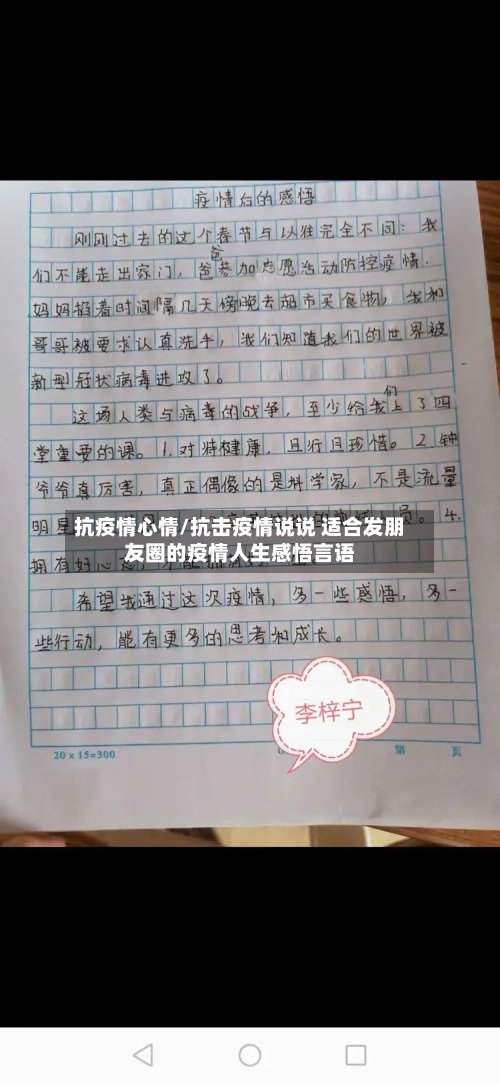 疫情后的感悟
刚刚过去的这个春节与以往完全不同：我
们不能走出家门，爸爸参加志愿活动防控疫情，
妈妈掐着时间隔几天傍晚去超市买食物，我和
哥哥被要求认真洗手，我们知道我们的世界被
新型冠状病毒进攻了。
这场人类与病毒的战争，至少给我们上了四
堂重要的课。1.对待健康，且行且珍惜。2.钟
爷爷真厉害，真正偶像的是科学家，不是流量
明星
员。4.
抗疫情心情/抗击疫情说说 适合发朋
友圈的疫情人生感悟言语
拥有好心
希望我通过这次疫情，多一些感悟，多一
些行动，能有更多的思考和成长。
李梓宁
20×15=300
第 页